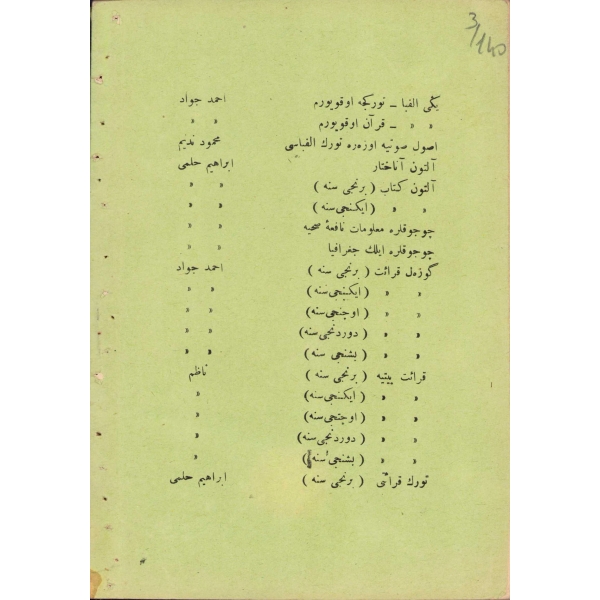 3/140
یڭی الفبا ـ تورکجه اوقویورم احمد جواد
» » ـ قرآن اوقویورم » »
اصول صوتیه اوزەرە تورك الفباسی محمود ندیم
آلتون آناختار ابراهیم حلمی
آلتون کتاب ( برنجی سنه ) » »
» » ( ایکنجی سنه ) » »
چوجوقلرە معلومات نافعهٔ صحیه » »
چوجوقلرە ایلك جغرافیا » »
گوزەل قرائت ( برنجی سنه ) احمد جواد
» » ( ایکنجی سنه ) » »
» » ( اوچنجی سنه ) » »
» » ( دوردنجی سنه ) » »
» » ( بشنجی سنه ) » »
قرائت بیتیه ( برنجی سنه ) ناظم
» » ( ایکنجی سنه ) »
» » ( اوچنجی سنه ) »
» » ( دوردنجی سنه ) »
» » ( بشنجی سنه ) »
تورك قرائتی ( برنجی سنه ) ابراهیم حلمی